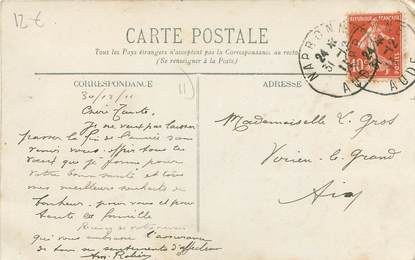 12€
CARTE POSTALE
Tous les Pays étrangers n'acceptent pas la Correspondance au recto
(Se renseigner à la Poste)
CORRESPONDANCE
ADRESSE
30/12/11
11
Chère Tante,
Je ne veux pas laisser
passer la fin de l'année sans
venir vous offrir tous les
vœux que je forme pour
votre bonne santé et tous
mes meilleurs souhaits de
bonheur pour vous et pour
toute la famille
qui vous embrasse l'assurance
de tous ses sentiments d'affection
Mademoiselle L. Gros
Virieu le Grand
Ain
NARBONNE
AUDE
10